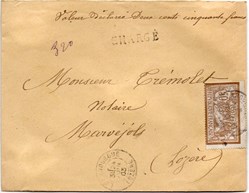 Valeur déclarée Deux cents cinquante francs
320
CHARGÉ
Monsieur Trémolet
Notaire
Marvéjols
(Lozère)